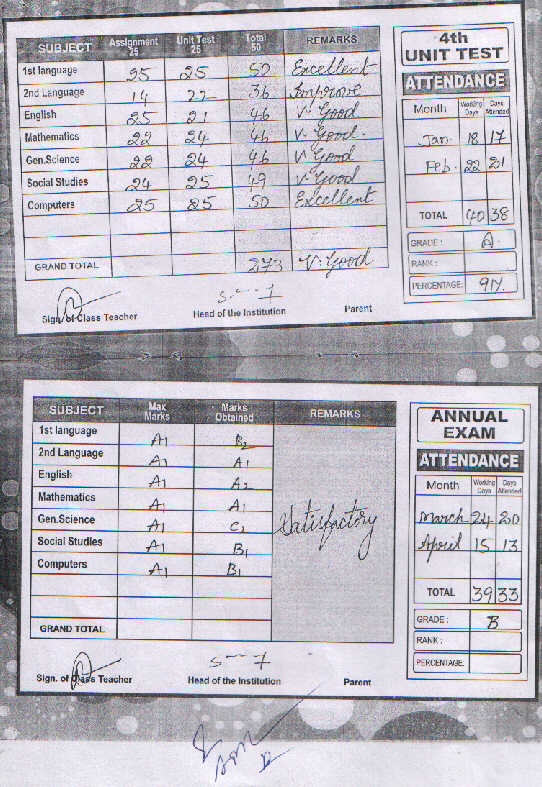 SUBJECT Assignment 25 Unit Test 25 Total 50 REMARKS
1st language 25 25 50 Excellent
2nd Language 14 22 36 Improve
English 25 21 46 V. Good
Mathematics 22 24 46 V. Good.
Gen.Science 22 24 46 V Good
Social Studies 24 25 49 V. Good
Computers 25 25 50 Excellent
GRAND TOTAL 273 V. Good
Sign. of Class Teacher Head of the Institution Parent
4th
UNIT TEST
ATTENDANCE
Month Working Days Days Attended
Jan. 18 17
Feb. 22 21
TOTAL 40 38
GRADE : A
RANK :
PERCENTAGE: 91%.
SUBJECT Max Marks Marks Obtained REMARKS
1st language A1 B2
2nd Language A1 A1
English A1 A2
Mathematics A1 A1
Gen.Science A1 C1
Social Studies A1 B1
Computers A1 B1
Satisfactory
GRAND TOTAL
Sign. of Class Teacher Head of the Institution Parent
ANNUAL
EXAM
ATTENDANCE
Month Working Days Days Attended
March 24 20
April 15 13
TOTAL 39 33
GRADE : B
RANK :
PERCENTAGE: